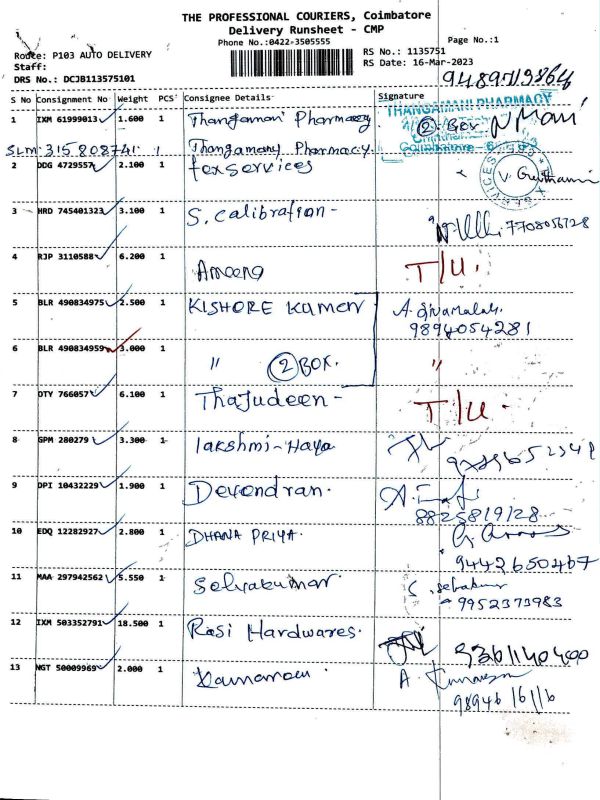 THE PROFESSIONAL COURIERS, Coimbatore
Delivery Runsheet - CMP
Phone No.:0422-3505555
Page No.:1
Route: P103 AUTO DELIVERY
RS No.: 1135751
Staff:
RS Date: 16-Mar-2023
DRS No.: DCJB113575101
S No Consignment No Weight PCS Consignee Details Signature
THANGAMANI PHARMACY
1 IXM 61999013 1.600 1 Thangamani Pharmacy 2 Box Mani
Coimbatore - 6
SLM: 315808741. 1 Thangamany Pharmacy
2 DDG 4729557 2.100 1 fox services
SERVICES
3 HRD 745401323 3.100 1 S. Calibration - 7708056728
4 RJP 3110588 6.200 1 Ameena T/U.
5 BLR 490834975 2.500 1 KISHORE Kumer A. Sivamalai.
9894054281
6 BLR 490834959 3.000 1 " 2 BOX. "
7 OTY 766057 6.100 1 Thajudeen - T/U -
8 GPM 280279 3.300 1 lakshmi-Haya
9 DPI 10432229 1.900 1 Devendran.
8825819128
10 EDQ 12282927 2.800 1 DHANA PRIYA.
9442650467
11 MAA 297942562 5.550 1 Selvakumar.
9952373983
12 IXM 503352791 18.500 1 Rasi Hardwares. 9361140400
13 NGT 50009969 2.000 1 A